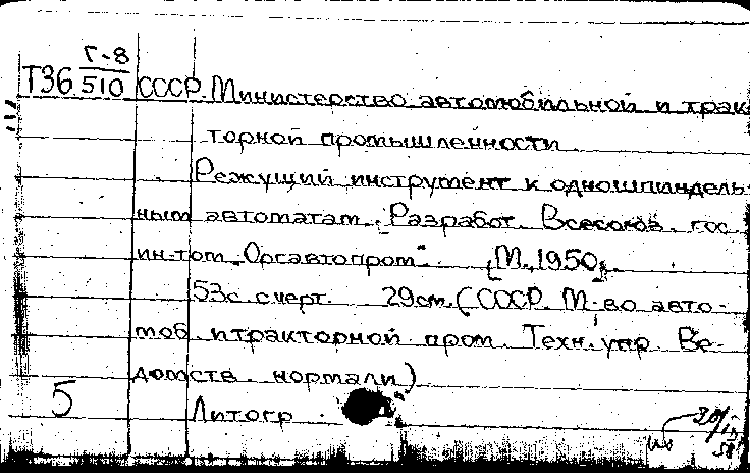 Г-8
Т36 510 СССР. Министерство автомобильной и трак-
торной промышленности
Режущий инструмент к одношпиндель-
ным автоматам. Разработ. Всесоюз. гос.
ин-том "Оргавтопром". [М., 1950].
53с. с черт. 29см. (СССР. М-во авто-
моб. и тракторной пром. Техн. упр. Ве-
домств. нормали)
5 Литогр.